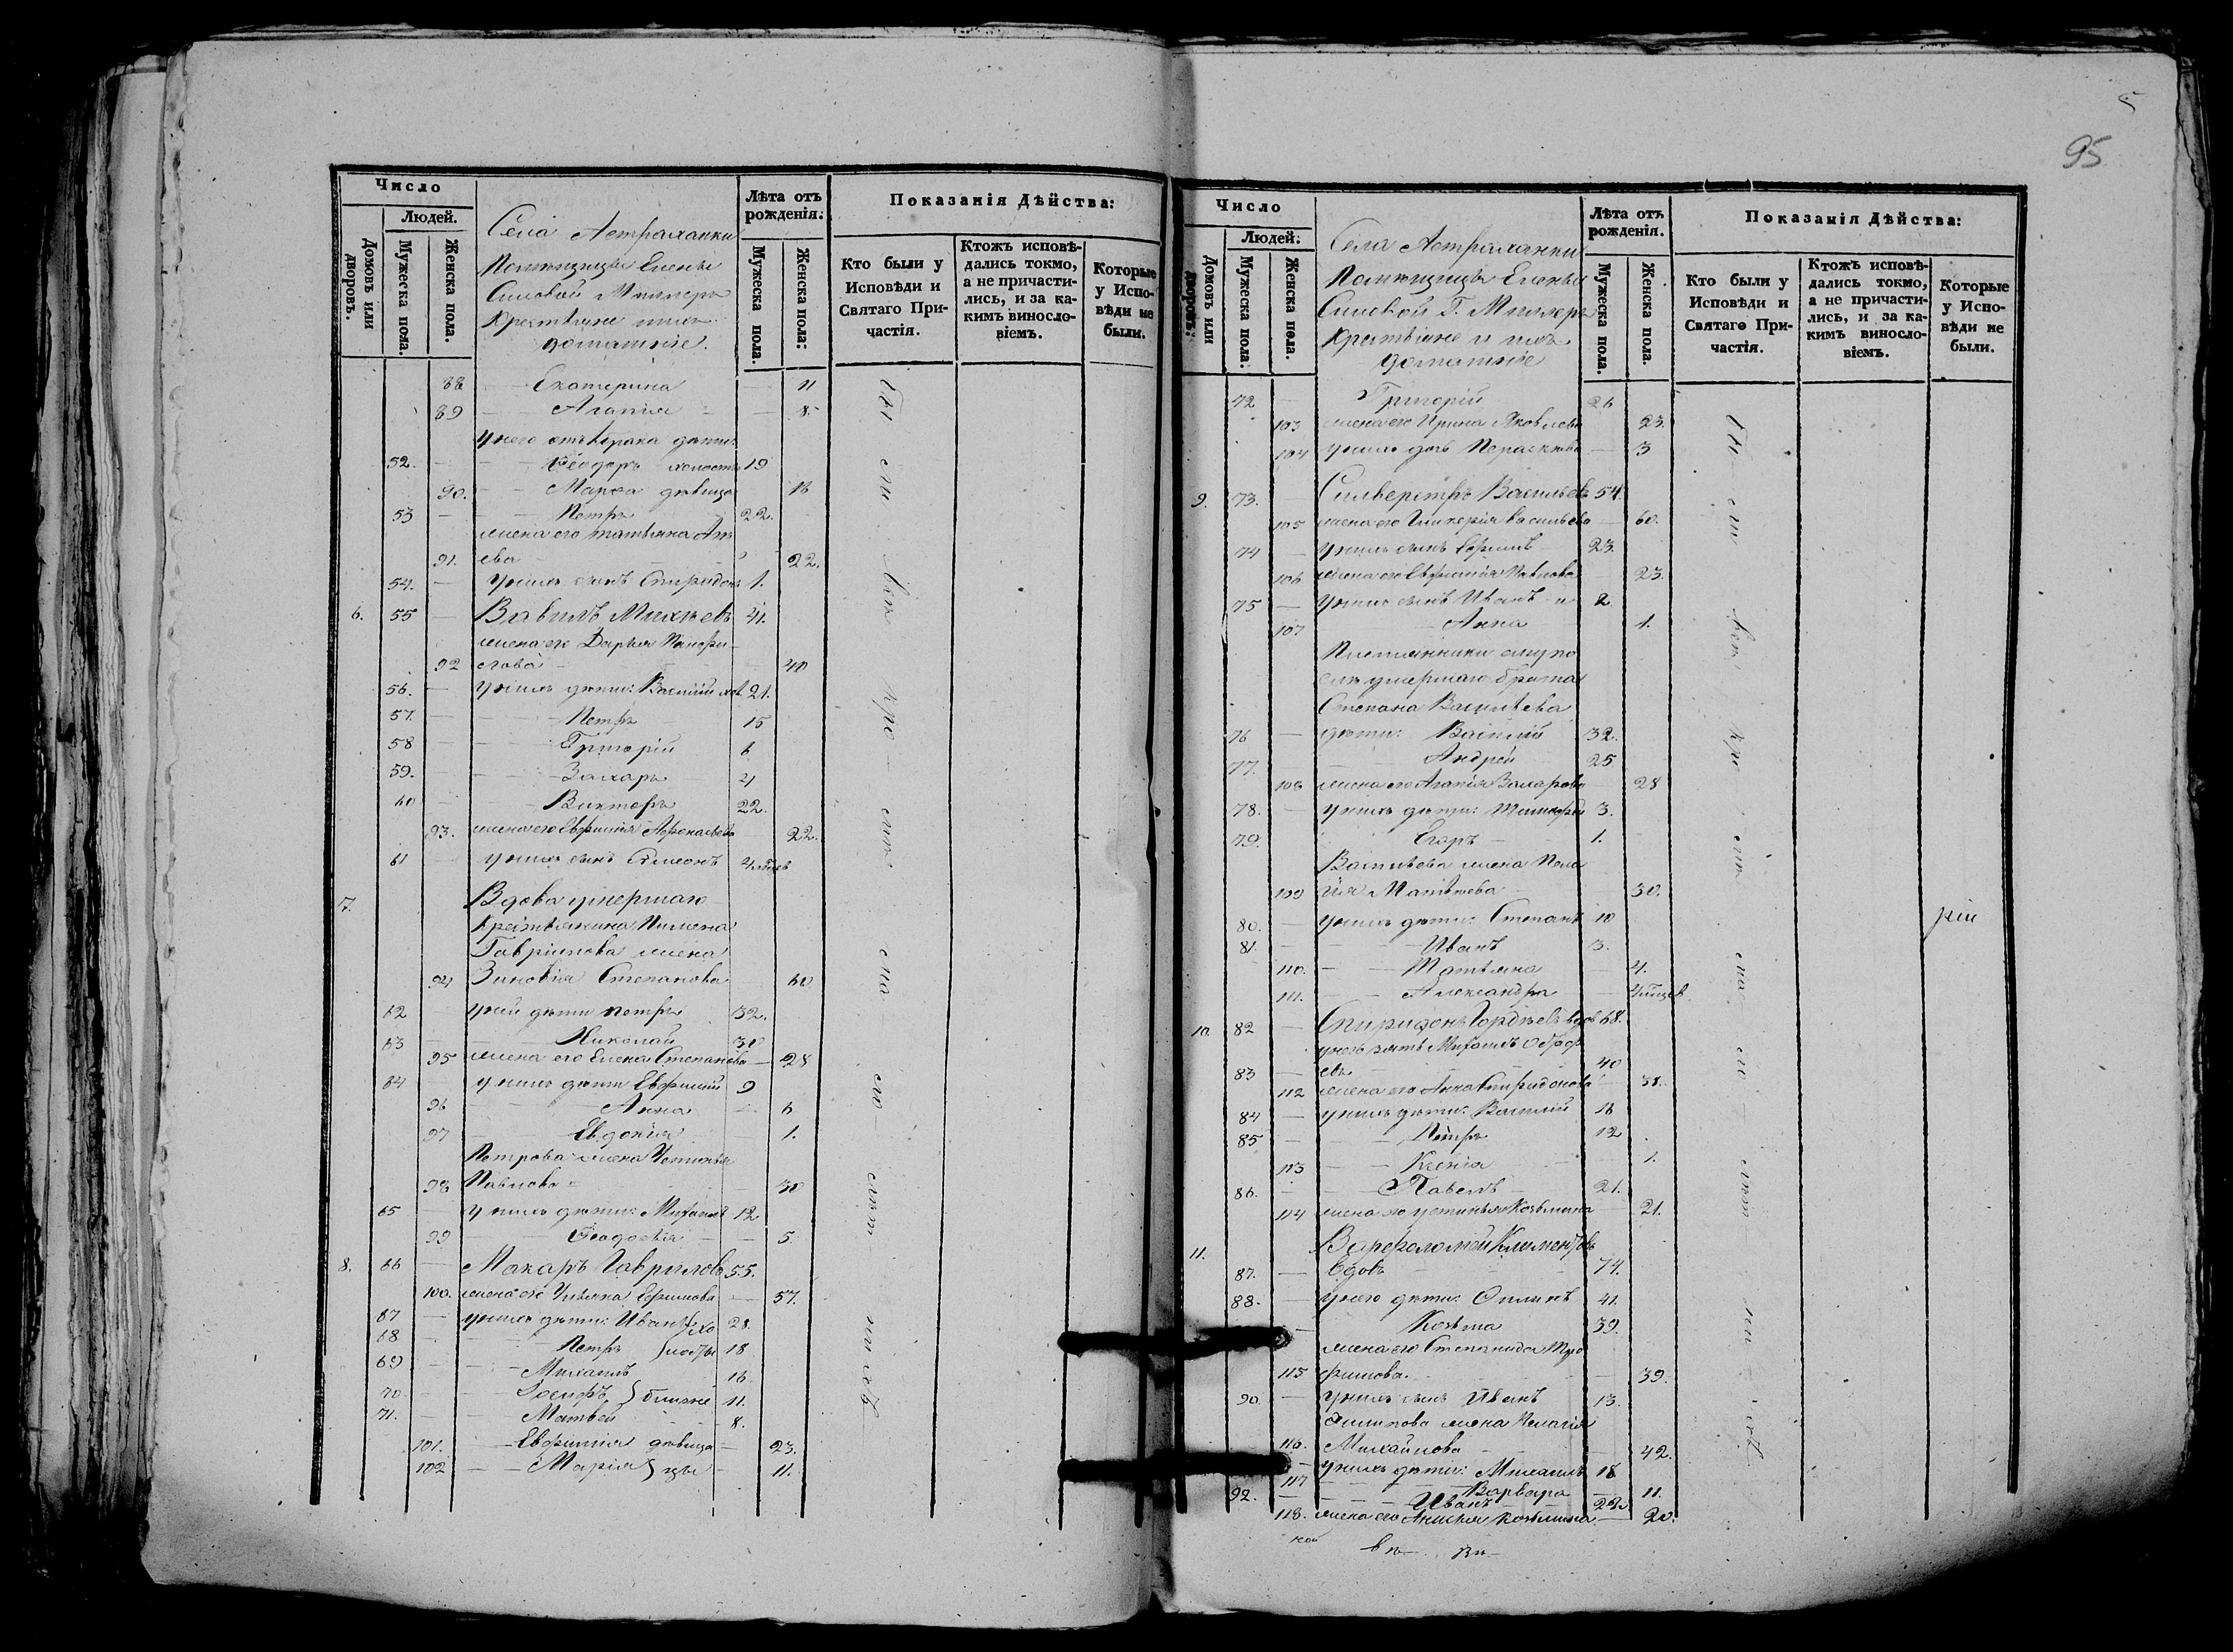 Число
Людей.
Домовъ или дворовъ.
Мужеска пола.
Женска пола.
Села Астраханки
Помѣщицы Елены
Миллеръ
Крестьяне
домашніе.
Лѣта отъ рожденія.
Мужеска пола.
Женска пола:
Показанія Дѣйства:
Кто были у Исповѣди и Святаго Причастія.
Ктожъ исповѣдались токмо, а не причастились, и за какимъ винословіемъ.
Которые у Исповѣди не были.
88 Екатерина 11
89 Агапія 8
у него отъ брака дѣти:
52. Ѳеодоръ холостъ 19
90. Марѳа дѣвица 16
53 Петръ 22.
жена его Татьяна
91. ева 22.
54. у нихъ сынъ Спиридонъ 1.
6. 55 Вавилъ Михѣевъ 41.
жена его Дарья
92 40
56. у нихъ дѣти: Василій 21.
57. Петръ 15
58 Григорій 6
59. Захаръ 4
60 Викторъ 22.
93. жена его Евфимія Аѳонасьева 22.
61 у нихъ сынъ Симеонъ
7. Вдова умершаго
Крестьянина Пимена
Гаврилова жена
94 Зиновія Степанова 60
62 у ней дѣти Петръ 32.
63 Николай 30
95 жена его Елена Степанова 28
64 у нихъ дѣти Евфимій 9
96 Анна 6
97 Евдокія 1.
Петрова жена Устинья
98 Павлова 30
65 у нихъ дѣти: Михаилъ 12
99 Ѳеодосія 5
8. 66 Макаръ Гавриловъ 55.
100. жена его Ульяна Ефимова 57.
67 у нихъ дѣти: Иванъ 28.
68 Петръ 18
69 Михаилъ 16
70 Іосифъ 11.
71. Матвей 8.
101. Евфимія дѣвица 23.
102 Марія 11.
5
95
Число
Людей.
Домовъ или дворовъ:
Мужеска пола.
Женска пола.
Села Астраханки
Помѣщицы Елены
Г. Миллеръ
Крестьяне и ихъ
домашніе
Лѣта отъ рожденія.
Мужеска пола.
Женска пола.
Показанія Дѣйства:
Кто были у Исповѣди и Святаго Причастія.
Ктожъ исповѣдались токмо, а не причастились, и за какимъ винословіемъ.
Которые у Исповѣди не были.
72 Григорій 26
103 жена его Ирина Яковлева 23.
104 у нихъ дочь Параскева 3
9. 73. Сильверстръ Васильевъ 54.
105 жена его Гликерія Васильева 60.
74 у нихъ сынъ Ефимъ 23.
106 жена его Евфимія Павлова 23.
75 у нихъ сынъ Иванъ и 2.
107 Анна 1.
Племянники
умершаго брата
Степана Васильева
76 дѣти: Василій 32.
77. Андрей 25
108 жена его Агапія Захарова 28
78. у нихъ дѣти: Тимоѳей 3.
79. Егоръ 1.
Васильева жена Пела
109 гія Матвѣева 30.
80. у нихъ дѣти: Степанъ 10
81. Иванъ 3.
110. Татьяна 4.
111. Александра
10. 82 Спиридонъ Гордѣевъ вдов 68.
у него зять Михаилъ
83 евъ 40
112 жена его Анна Спиридонова 38.
84 у нихъ дѣти: Василій 16
85 Петръ 12
113 Ксенія 1.
86. Павелъ 21.
114 жена его Устинья Козьмина 21.
11. Варфоломей Климентовъ
87. вдовъ 74.
88. у него дѣти: Филипъ 41.
Козьма 39.
жена его Степанида Тро
115 фимова. 39.
90. у нихъ сынъ Иванъ 13.
Филипова жена Пелагія
116. Михайлова 42.
у нихъ дѣти: Михаилъ 18
117 Варвара 11.
92. Иванъ 22.
118. жена его Анисья Козьмина 20.